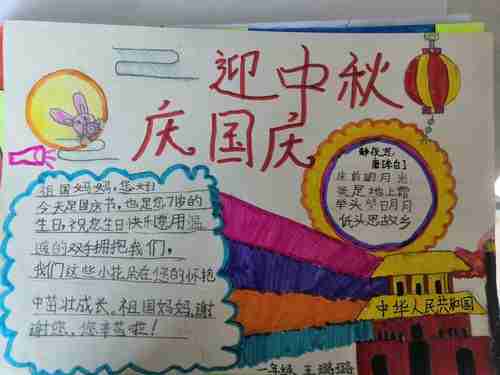 迎中秋
庆国庆
静夜思
唐[李白]
床前明月光
疑是地上霜
举头望明月
低头思故乡
祖国妈妈，您好！
今天是国庆节，也是您7岁的
生日，祝您生日快乐，您用温
暖的双手拥抱我们，
我们这些小花朵在您的怀抱
中茁壮成长。祖国妈妈，谢
谢您，您辛苦啦！
中华人民共和国
一年级 王璐璐